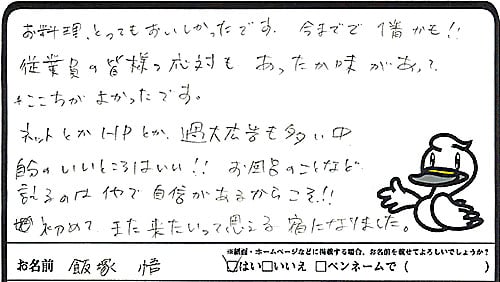 お料理、とってもおいしかったです。今までで1番かも!!
従業員の皆様の応対も あったか味があって、
ここちがよかったです。
ネットとかHPとか、過大広告も多い中
自分のいいところはいい!! お風呂のことなど
のは他で 自信があるからこそ!!
初めて、また来たいって思える宿になりました。
※紙面・ホームページなどに掲載する場合、お名前を載せてよろしいでしょうか?
お名前 飯塚 悟 ☑はい□いいえ □ペンネームで( )